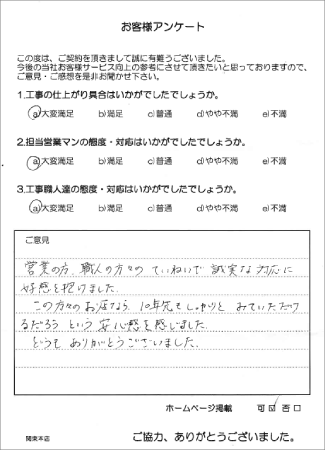 お客様アンケート
この度は、ご契約を頂きまして誠に有難うございました。
今後の当社お客様サービス向上の参考にさせて頂きたいと思っておりますので、
ご意見・ご感想を是非お聞かせ下さい。
1.工事の仕上がり具合はいかがでしたでしょうか。
a)大変満足 b)満足 c)普通 d)やや不満 e)不満
2.担当営業マンの態度・対応はいかがでしたでしょうか。
a)大変満足 b)満足 c)普通 d)やや不満 e)不満
3.工事職人達の態度・対応はいかがでしたでしょうか。
a)大変満足 b)満足 c)普通 d)やや不満 e)不満
ご意見
営業の方、職人の方々の ていねいで 誠実な対応に
好感を抱けました。
この方々のお店なら、10年先もしっかりと みていただけ
るだろう という 安心感を感じました。
どうも ありがとうございました。
ホームページ掲載 可 ☑ 否 □
関東本店
ご協力、ありがとうございました。